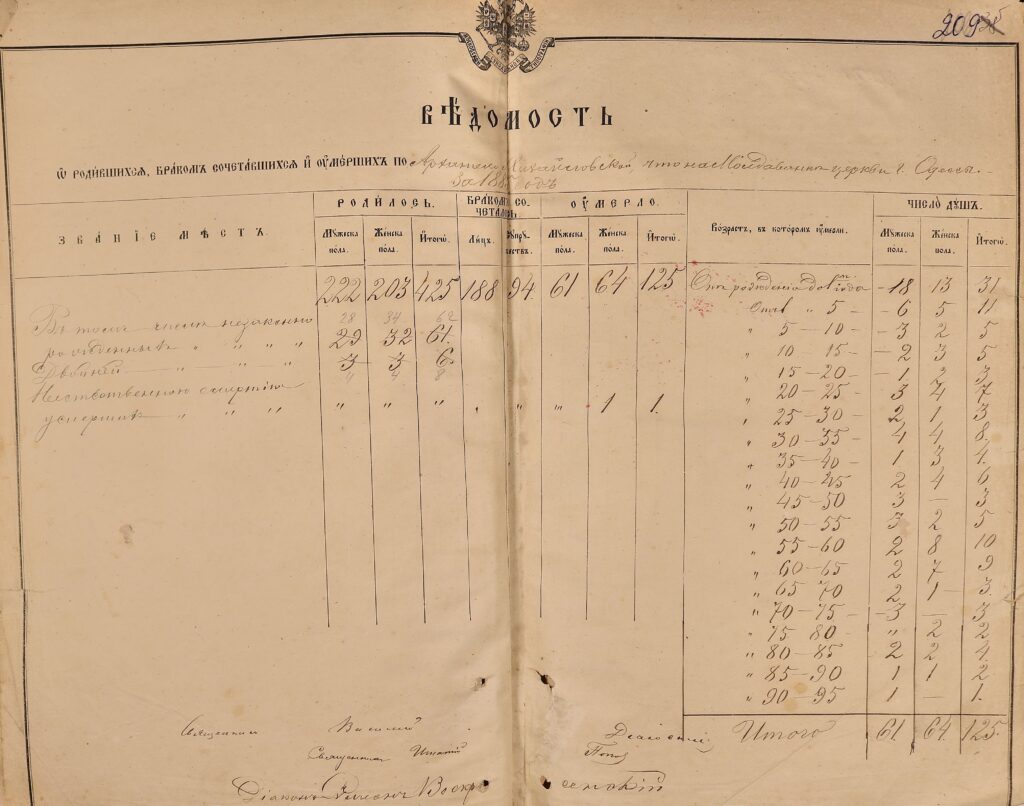 209
ВѢДОМОСТЬ
Ѡ РОДИ́ВШИХСЯ, БРА́КОМЪ СОЧЕТА́ВШИХСЯ И҆ ОУ҆МЕ́РШИХЪ ПО Архангело Михайловской, что на Молдаванкѣ церкви г. Одессы.
За 188 годъ
ЗВАНІЕ МѢСТЪ. РОДИЛОСЬ. БРАКОМЪ СО-ЧЕТАЛОСЬ. ОУ҆МЕРЛО. Возрастъ, въ которомъ оу҆мерли. ЧИСЛО ДꙋШЪ.
Мꙋжеска пола. Женска пола. Итогѡ. Лицъ. Сꙋпрꙋжествъ. Мꙋжеска пола. Женска пола. Итогѡ. Мꙋжеска пола. Женска пола. Итогѡ.
222 203 425 188 94 61 64 125 Отъ рожденія до 1го года 18 13 31
Отъ 1 „ 5 6 5 11
Въ томъ числѣ незаконно 28 34 62
рожденныхъ „ „ „ „ 29 32 61. „ 5 – 10 – 3 2 5
Двойней 3 3 6 „ 10 15 – 2 3 5
„ 4 8 „ 15 – 20 – 1 2 3
Неестественною смертію „ 20 – 25 3 4 7
умершихъ „ „ „ „ „ „ „ „ „ 1 1. „ 25 – 30 – 2 1 3
„ 30 – 35 4 4 8.
„ 35 – 40 – 1 3 4.
„ 40 – 45 2 4 6
„ 45 – 50 3 – 3
„ 50 – 55 3 2 5
„ 55 – 60 2 8 10
„ 60 – 65 2 7 9
„ 65 70 2 1 – 3.
„ 70 – 75 – 3 – 3
„ 75 80 – „ 2 2
„ 80 – 85 2 2 4.
„ 85 – 90 1 1 2
„ 90 – 95 1 – 1.
Итого 61 64 125.
Священникъ Василій
Священникъ
Діаконъ